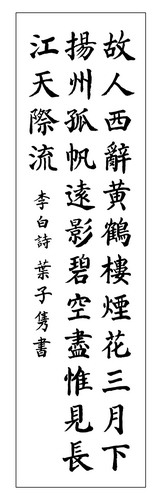 故人西辭黃鶴樓煙花三月下
揚州孤帆遠影碧空盡惟見長
江天際流 李白詩 葉子雋書